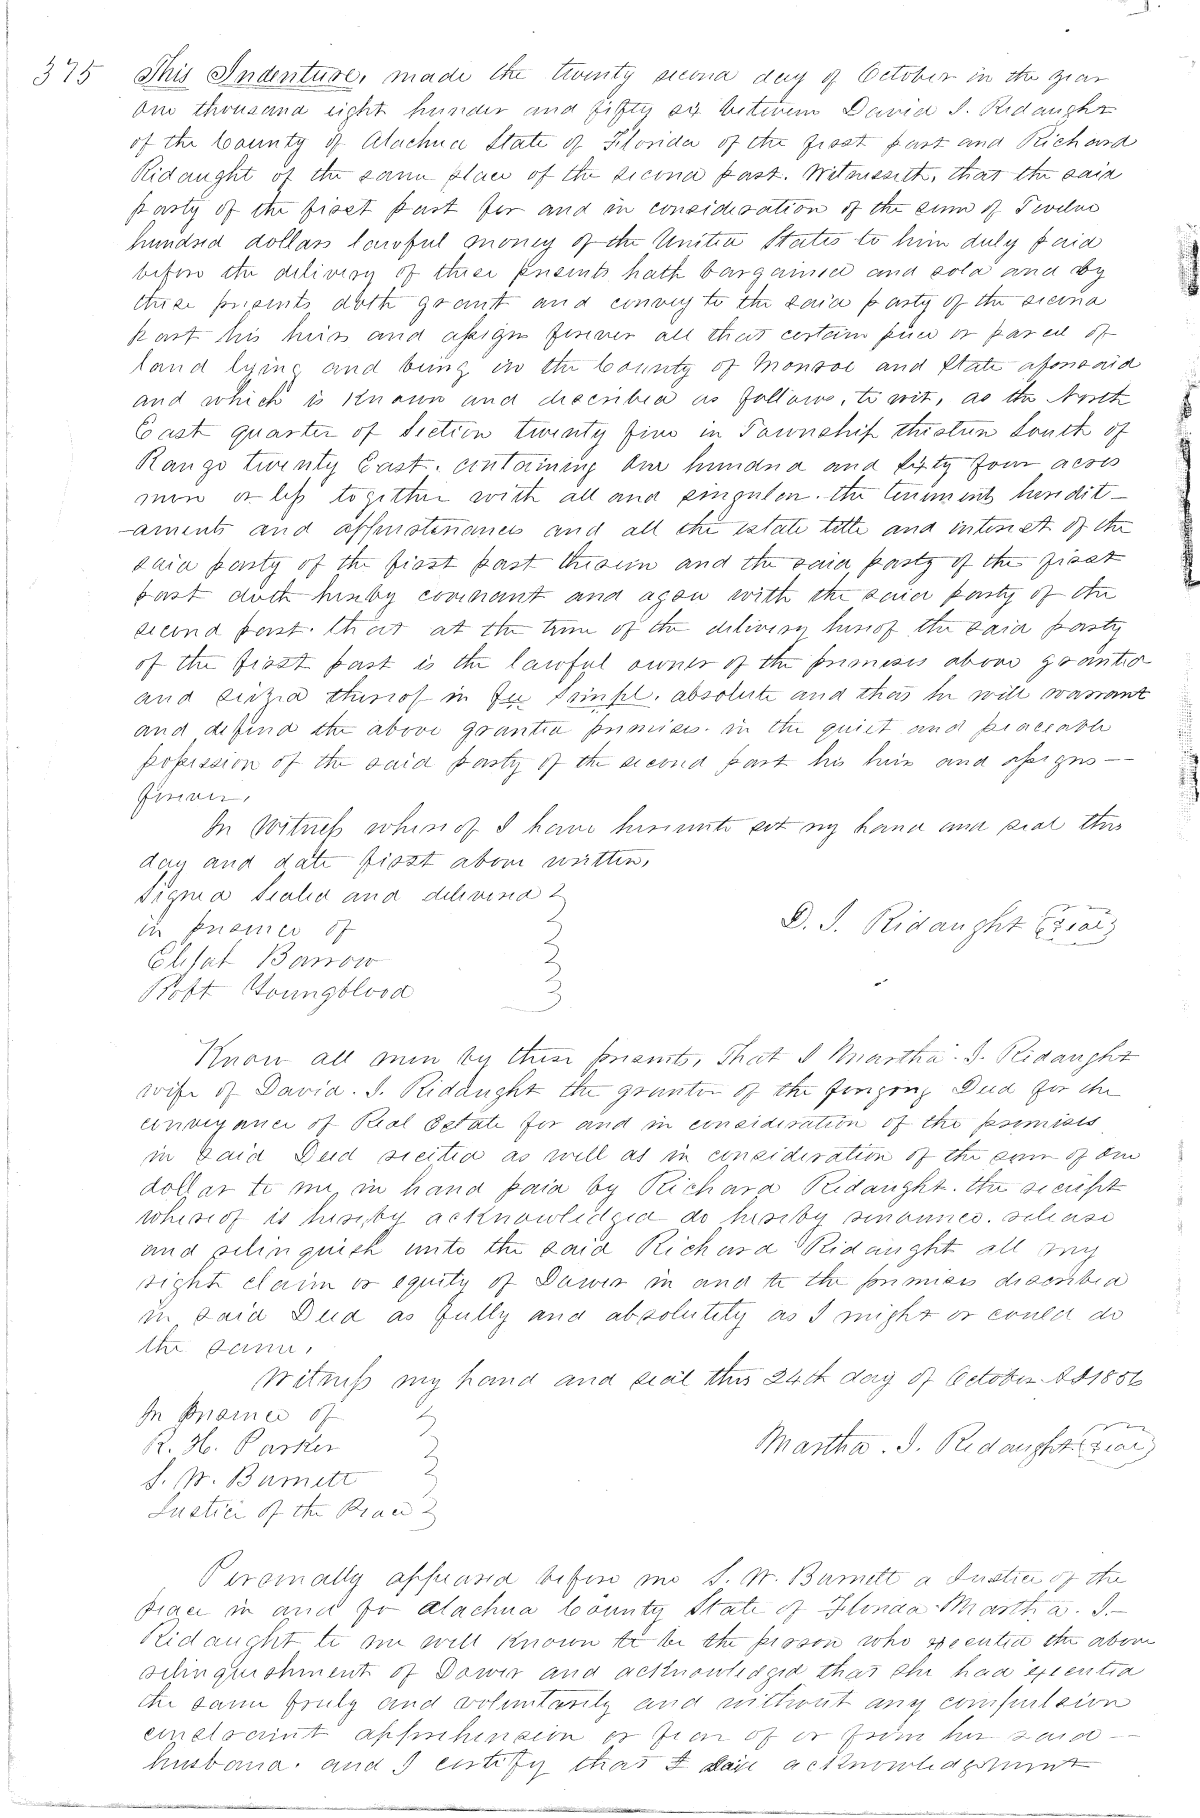 375 This Indenture, made the twenty second day of October in the year
one thousand eight hunder and fifty six between David I. Ridaught
of the County of Alachua State of Florida of the first part and Richard
Ridaught of the same place of the second part. Witnesseth, that the said
party of the first part for and in consideration of the sum of Twelve
hundred dollars lawful money of the United States to him duly paid
before the delivery of these presents hath bargained and sold and by
these presents doth grant and convey to the said party of the second
part his heirs and assigns forever all that certain piece or parcel of
land lying and being in the County of Monroe and State aforesaid
and which is known and described as follows, to wit, as the North
East quarter of Section twenty five in Township thirteen South of
Range twenty East. containing one hundred and sixty four acres
more or less together with all and singular. the tenements heredit-
-aments and appurtenances and all the estate title and interest of the
said party of the first part therein and the said party of the first
part doth hereby covenant and agree with the said party of the
second part. that at the time of the delivery hereof the said party
of the first part is the lawful owner of the premises above granted
and seized thereof in fee simple. absolute and that he will warrant
and defend the above granted premises. in the quiet and peaceable
possession of the said party of the second part his heirs and assigns --
forever.
In Witness whereof I have hereunto set my hand and seal this
day and date first above written.
Signed Sealed and delivered
in presence of
D. I. Ridaught (seal)
Barrow
Robt Youngblood
Know all men by these presents, That I Martha. I. Ridaught
wife of David. I. Ridaught the grantor of the foregoing Deed for the
conveyance of Real Estate for and in consideration of the premises
in said Deed recited as well as in consideration of the sum of one
dollar to me in hand paid by Richard Ridaught. the receipt
whereof is hereby acknowledged do hereby renounce. release
and relinquish unto the said Richard Ridaught all my
right claim or equity of Dower in and to the premises described
in said Deed as fully and absolutely as I might or could do
the same.
Witness my hand and seal this 24th day of October AD 1856
In presence of
R. H. Parker
Martha. I. Ridaught (seal)
S. W. Burnett
Justice of the Peace
Personally appeared before me S. W. Burnett a Justice of the
peace in and for Alachua County State of Florida Martha. I.-
Ridaught to me well known to be the person who executed the above
relinquishment of Dower and acknowledged that she had executed
the same freely and voluntarily and without any compulsion
constraint apprehension or fear of or from her said --
husband. and I certify that I said acknowledgement